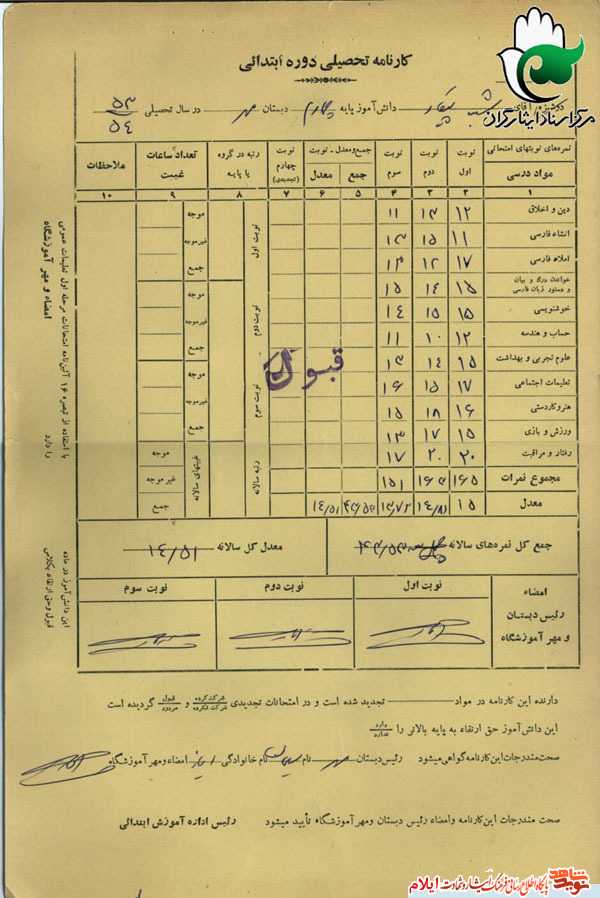 کارنامه تحصیلی دوره ابتدائی
مرکز اسناد ایثارگران
دوشیزه / آقای دانش آموز پایه چهارم دبستان مهر در سال تحصیلی ۵۳ ۵۴
نمره‌های نوبتهای امتحانی نوبت اول نوبت دوم نوبت سوم جمع و معدل ـ نوبت نوبت چهارم (تجدیدی) رتبه در گروه یا پایه تعداد ساعات غیبت ملاحظات
مواد درسی جمع معدل
۱ ۲ ۳ ۴ ۵ ۶ ۷ ۸ ۹ ۱۰
دین و اخلاق ۱۲ ۱۳ ۱۱ نوبت اول موجه
انشاء فارسی ۱۱ ۱۵ ۱۳ غیرموجه
املاء فارسی ۱۷ ۱۲ ۱۳ جمع
خواندن درک و بیان و دستور زبان فارسی ۱۵ ۱۴ ۱۵ موجه
خوشنویسی ۱۵ ۱۵ ۱۴ نوبت دوم غیرموجه
حساب و هندسه ۱۲ ۱۰ ۱۱ جمع
علوم تجربی و بهداشت ۱۵ ۱۴ ۱۳ قبول موجه
تعلیمات اجتماعی ۱۷ ۱۵ ۱۶ نوبت سوم غیرموجه
هنر و کاردستی ۱۶ ۱۸ ۱۵ جمع
ورزش و بازی ۱۵ ۱۷ ۱۳
رفتار و مراقبت ۲۰ ۲۰ ۱۷ رتبه سالانه موجه
مجموع نمرات ۱۶۵ ۱۶۳ ۱۵۱ غیر موجه
معدل ۱۵ ۱۴/۸۱ ۱۳/۷۲ ۴۳/۵۳ ۱۴/۵۱ جمع
با استفاده از تبصره ۱۶ آئین‌نامه امتحانات مرحله اول تعلیمات عمومی
امضاء و مهر آموزشگاه
را دارد
این دانش آموز در ماده
قبول و حق ارتقاء بکلاس
جمع کل نمره‌های سالانه ۴۳/۵۳ معدل کل سالانه ۱۴/۵۱
امضاء رئیس دبستان و مهر آموزشگاه نوبت اول نوبت دوم نوبت سوم
دارنده این کارنامه در مواد تجدید شده است و در امتحانات تجدیدی شرکت کرده شرکت نکرده و قبول مردود گردیده است
این دانش آموز حق ارتقاء به پایه بالاتر را دارد ندارد
صحت مندرجات این کارنامه گواهی میشود رئیس دبستان مهر نام نام خانوادگی امضاء و مهر آموزشگاه
صحت مندرجات این کارنامه و امضاء رئیس دبستان و مهر آموزشگاه تأیید میشود رئیس اداره آموزش ابتدائی
نوید شاهد پایگاه اطلاع رسانی فرهنگ ایثار و شهادت ایلام